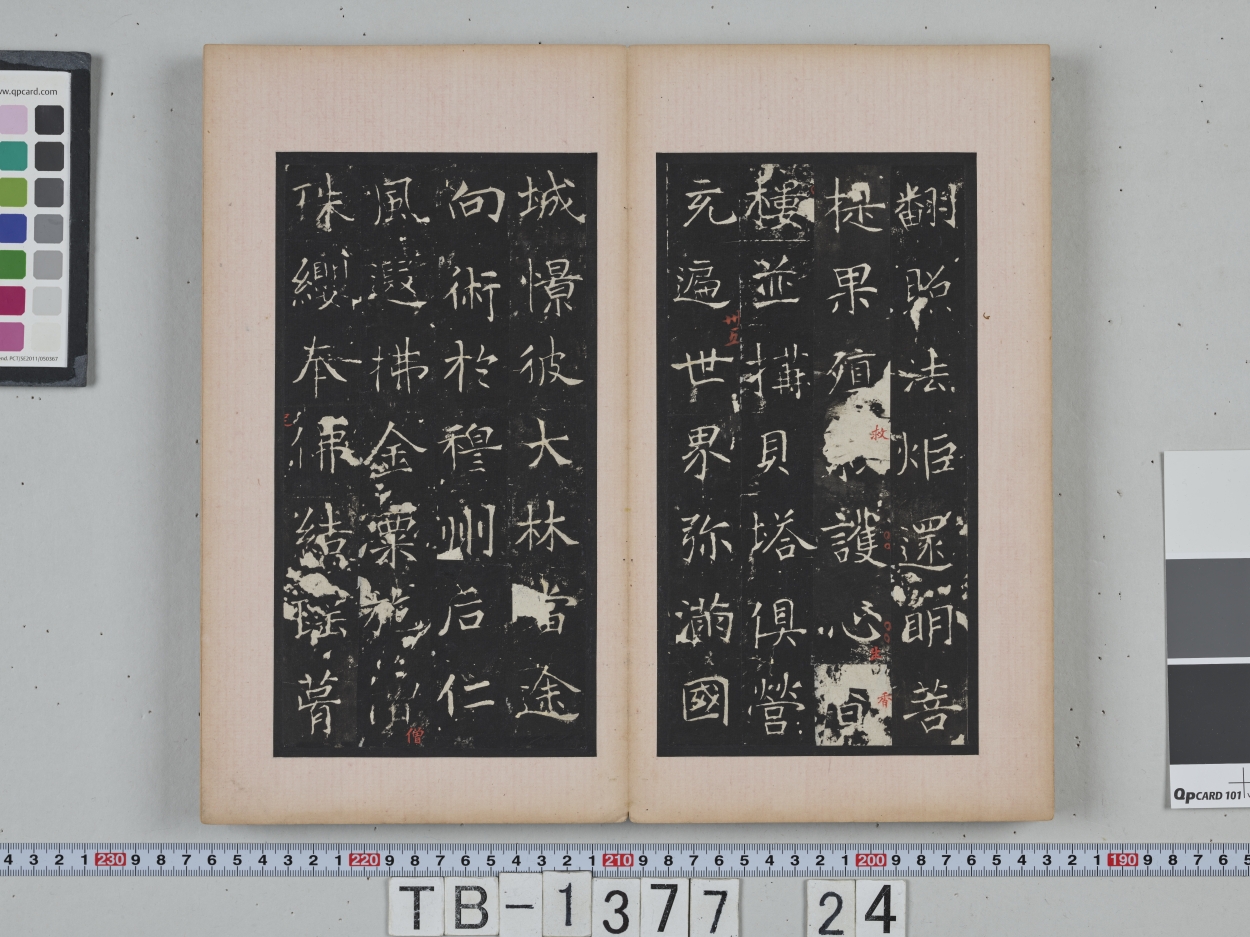 翻照法炬還明菩
提果殖救護心香
樓並構貝塔俱營
充遍世界弥滿國
城憬彼大林當途
向術於穆州后仁
風遐拂金粟施僧
珠纓奉佛結瑶葺
救
香
卅五
僧
www.qpcard.com
QPCARD 101
4 3 2 1 230 9 8 7 6 5 4 3 2 1 220 9 8 7 6 5 4 3 2 1 210 9 8 7 6 5 4 3 2 1 200 9 8 7 6 5 4 3 2 1 190 9 8 7 6 5
TB-1377 24